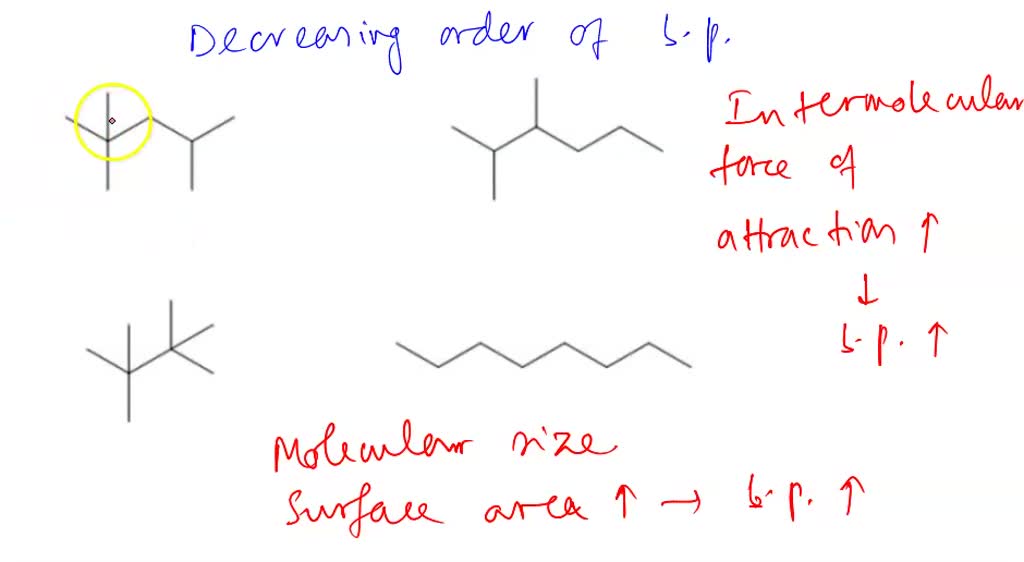 Decreasing order of b.p.
Intermolecular
force of
attraction ↑
↓
b.p. ↑
Molecular size
Surface area ↑ → b.p. ↑